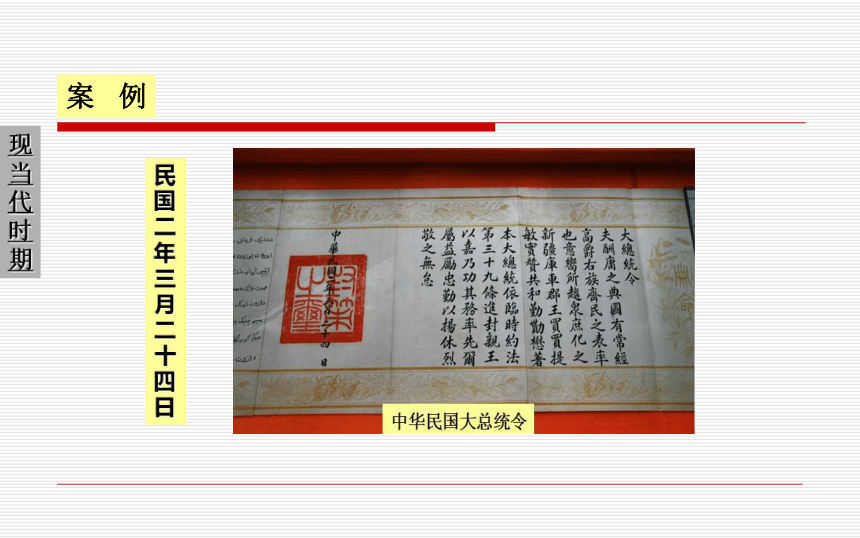 案 例
现当代时期
民国二年三月二十四日
大總統令
夫酬庸之典國有常經
高爵右族齊民之表率
也意嚮所趨衆庶化之
新疆庫車郡王買買提
敏實贊共和勤勩懋著
本大總統依臨時約法
第三十九條進封親王
以嘉乃功其務率先爾
屬益勵忠勤以揚休烈
敬之無怠
中華民國二年三月二十四日
中华民国大总统令